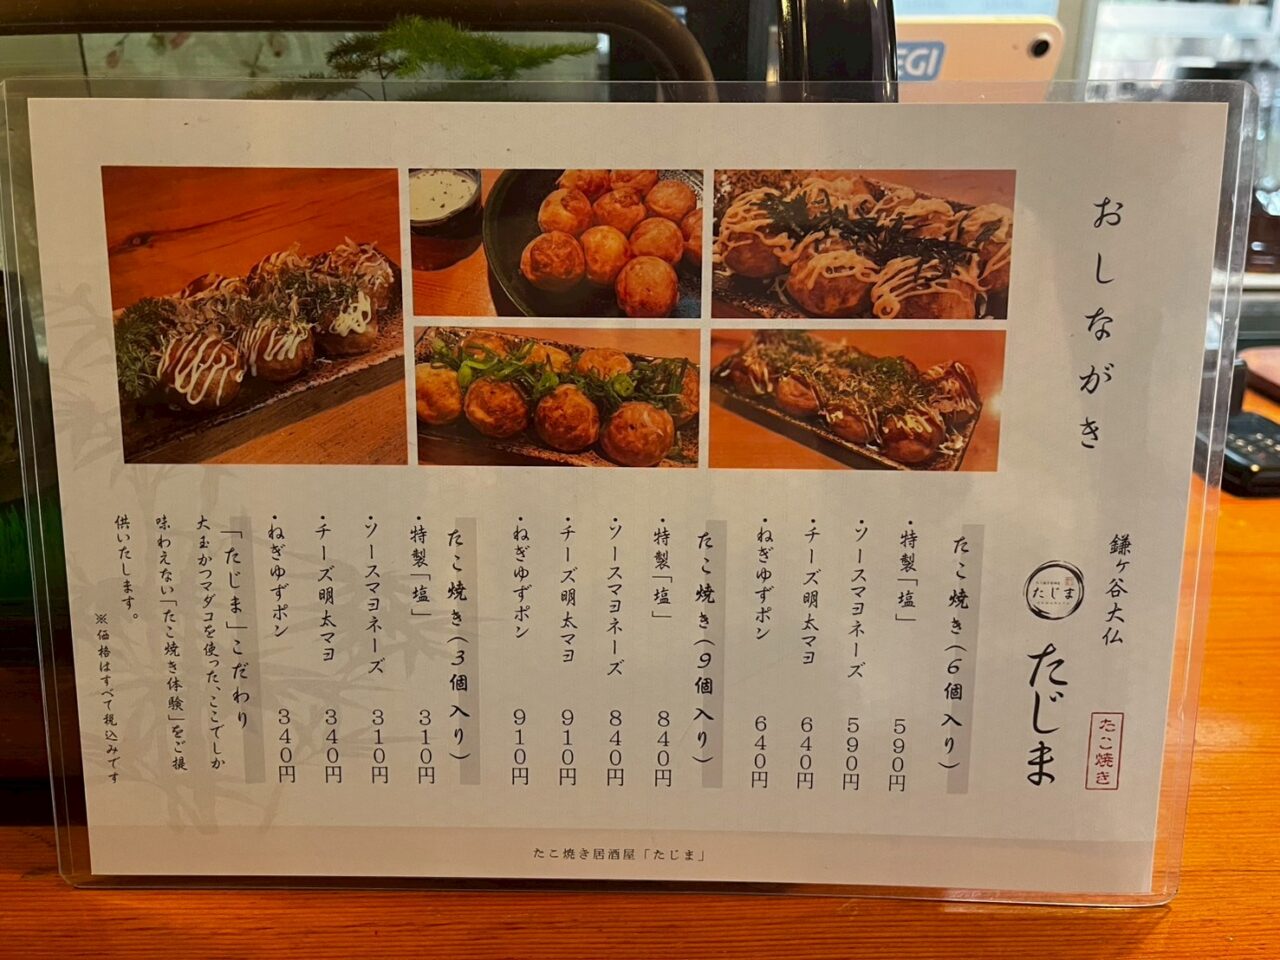 おしながき
鎌ヶ谷大仏
たじま
たじま
たこ焼き
たこ焼き(6個入り)
・特製「塩」 590円
・ソースマヨネーズ 590円
・チーズ明太マヨ 640円
・ねぎゆずポン 640円
たこ焼き(9個入り)
・特製「塩」 840円
・ソースマヨネーズ 840円
・チーズ明太マヨ 910円
・ねぎゆずポン 910円
たこ焼き(3個入り)
・特製「塩」 310円
・ソースマヨネーズ 310円
・チーズ明太マヨ 340円
・ねぎゆずポン 340円
「たじま」こだわり
大玉かつマダコを使った、ここでしか
味わえない「たこ焼き体験」をご提
供いたします。
※価格はすべて税込みです
たこ焼き居酒屋「たじま」
EGI